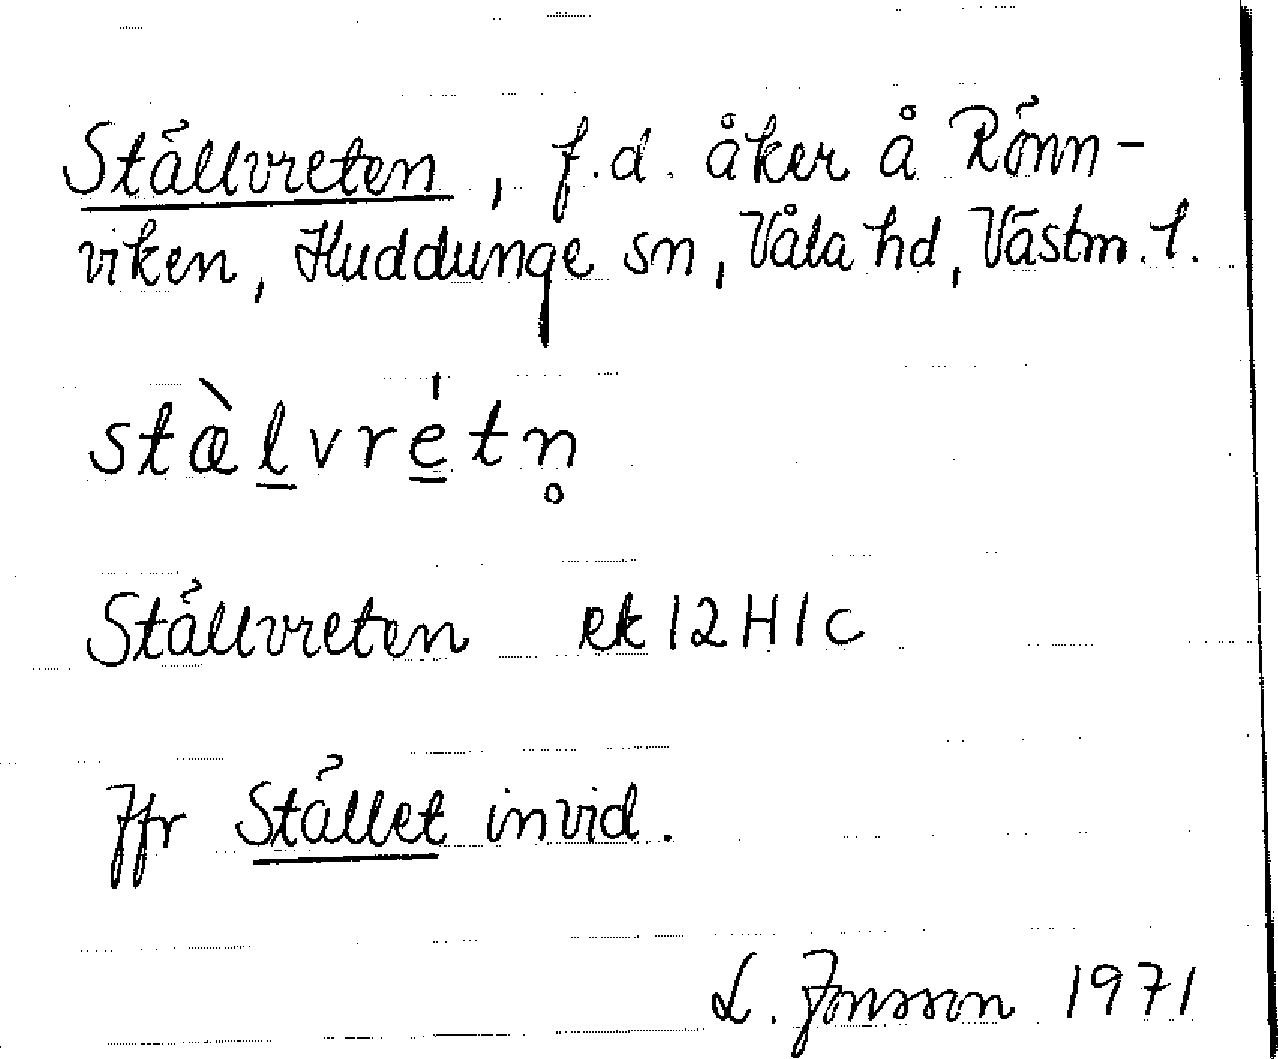 Ställvreten, f.d. åker å Rönn-
viken, Huddunge sn, Våla hd, Västm. l.
stæ̀l̲vré̲tn̥
Ställvreten ek 12H1c
Jfr Stället invid.
L. Jonsson 1971